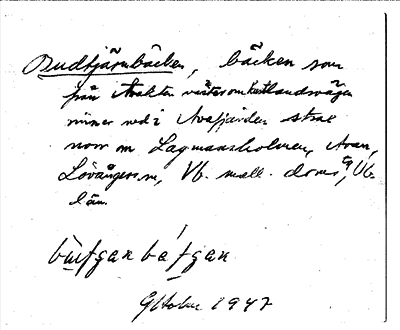 Budtjärnbäcken, bäcken som
från trakten väster om kustlandsvägen
rinner ned i Avafjärden strax
norr om Lagmansholmen, Avan,
Lövångers sn, Vb. mell. doms, Vb.
län.
Oktober 1947